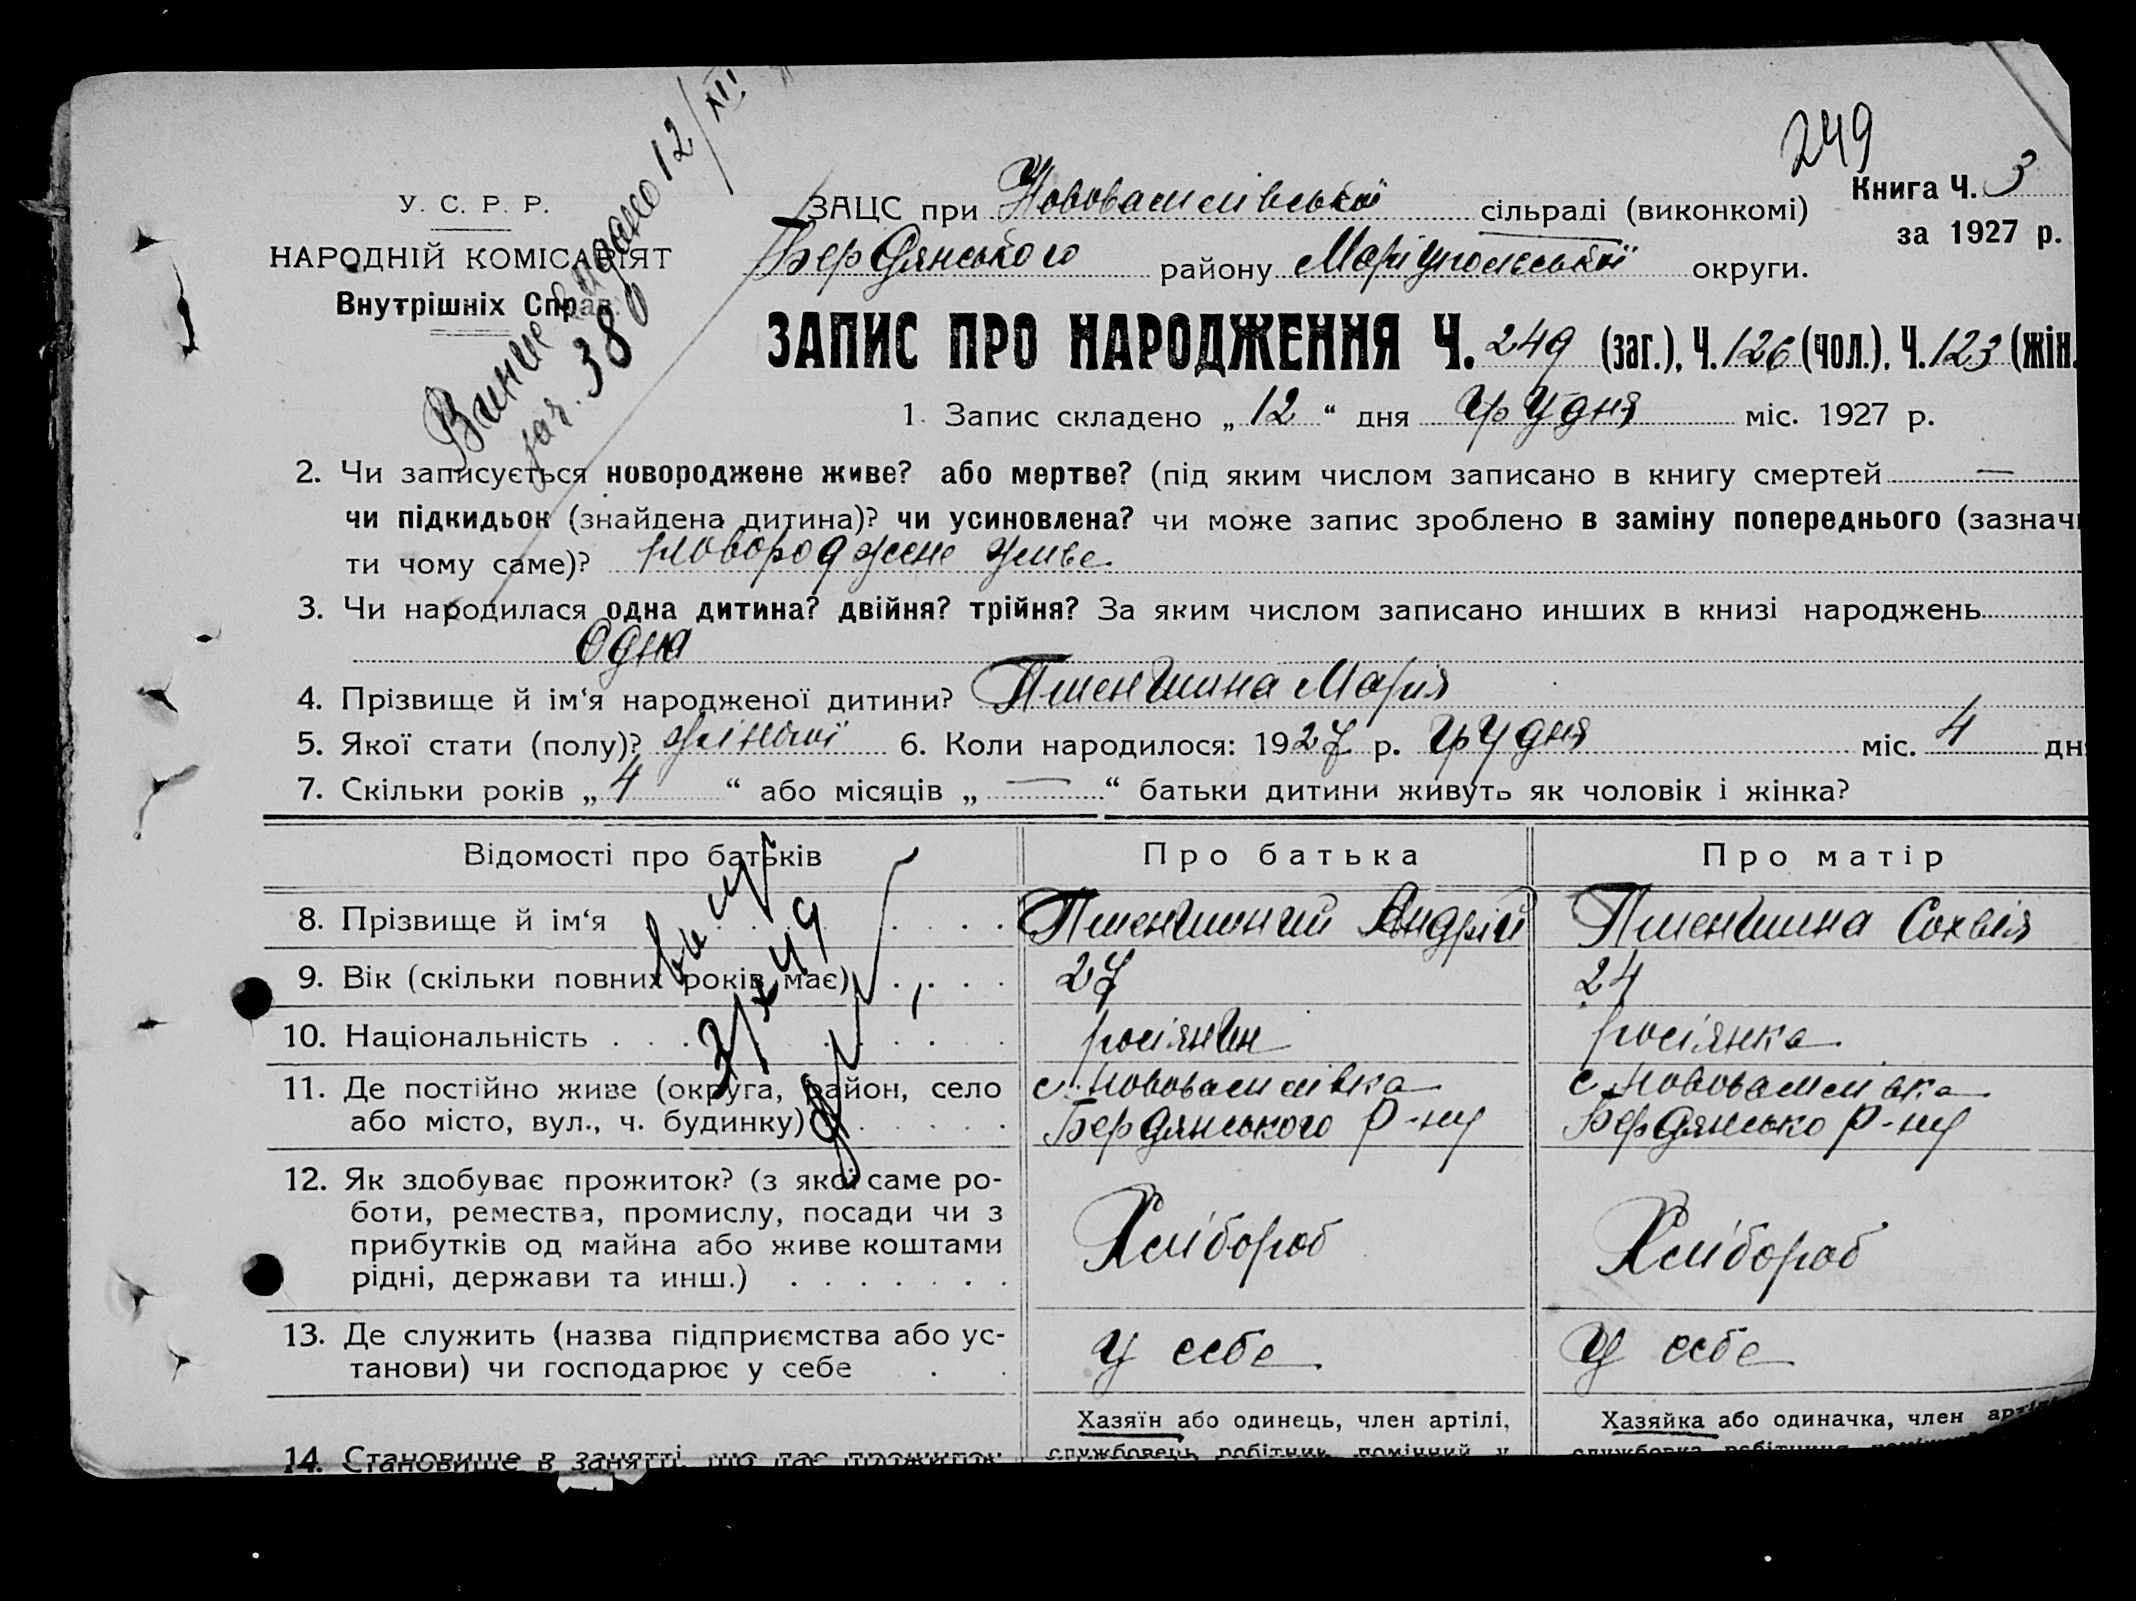 249
У. С. Р. Р.
НАРОДНІЙ КОМІСАРІЯТ
Внутрішніх Справ.
ЗАЦС при Нововасилівської сільраді (виконкомі)
Книга Ч. 3
за 1927 р.
Бердянського району Маріупольської округи.
12/XII
зач. 380
ЗАПИС ПРО НАРОДЖЕННЯ Ч. 249 (заг.), Ч. 126 (чол.), Ч. 123 (жін.
1. Запис складено „ 12 “ дня грудня міс. 1927 р.
2. Чи записується новороджене живе? або мертве? (під яким числом записано в книгу смертей —
чи підкидьок (знайдена дитина)? чи усиновлена? чи може запис зроблено в заміну попереднього (зазначи
ти чому саме)? новороджене живе
3. Чи народилася одна дитина? двійня? трійня? За яким числом записано инших в книзі народжень
одна
4. Прізвище й ім‘я народженої дитини? Пшенишна Мария
5. Якої стати (полу)? жіночої 6. Коли народилося: 1927 р. грудня міс. 4 дня
7. Скільки років „ 4 “ або місяців „ — “ батьки дитини живуть як чоловік і жінка?
Відомості про батьків Про батька Про матір
8. Прізвище й ім‘я Пшенишний Андрій Пшенишна Сохвія
9. Вік (скільки повних років має) 27 24
10. Національність росіянин росіянка
11. Де постійно живе (округа, район, село с. Нововасилівка с. Нововасилівка
або місто, вул., ч. будинку) Бердянського р-ну Бердянсько р-ну
12. Як здобуває прожиток? (з якої саме ро-
боти, ремества, промислу, посади чи з
прибутків од майна або живе коштами
рідні, держави та инш.) Хлібороб Хлібороб
13. Де служить (назва підприємства або ус-
танови) чи господарює у себе у себе у себе
Хазяїн або одинець, член артілі, Хазяйка або одиначка, член артілі
14. Становище в занятті, що дає прожиток службовець, робітник, помічний у